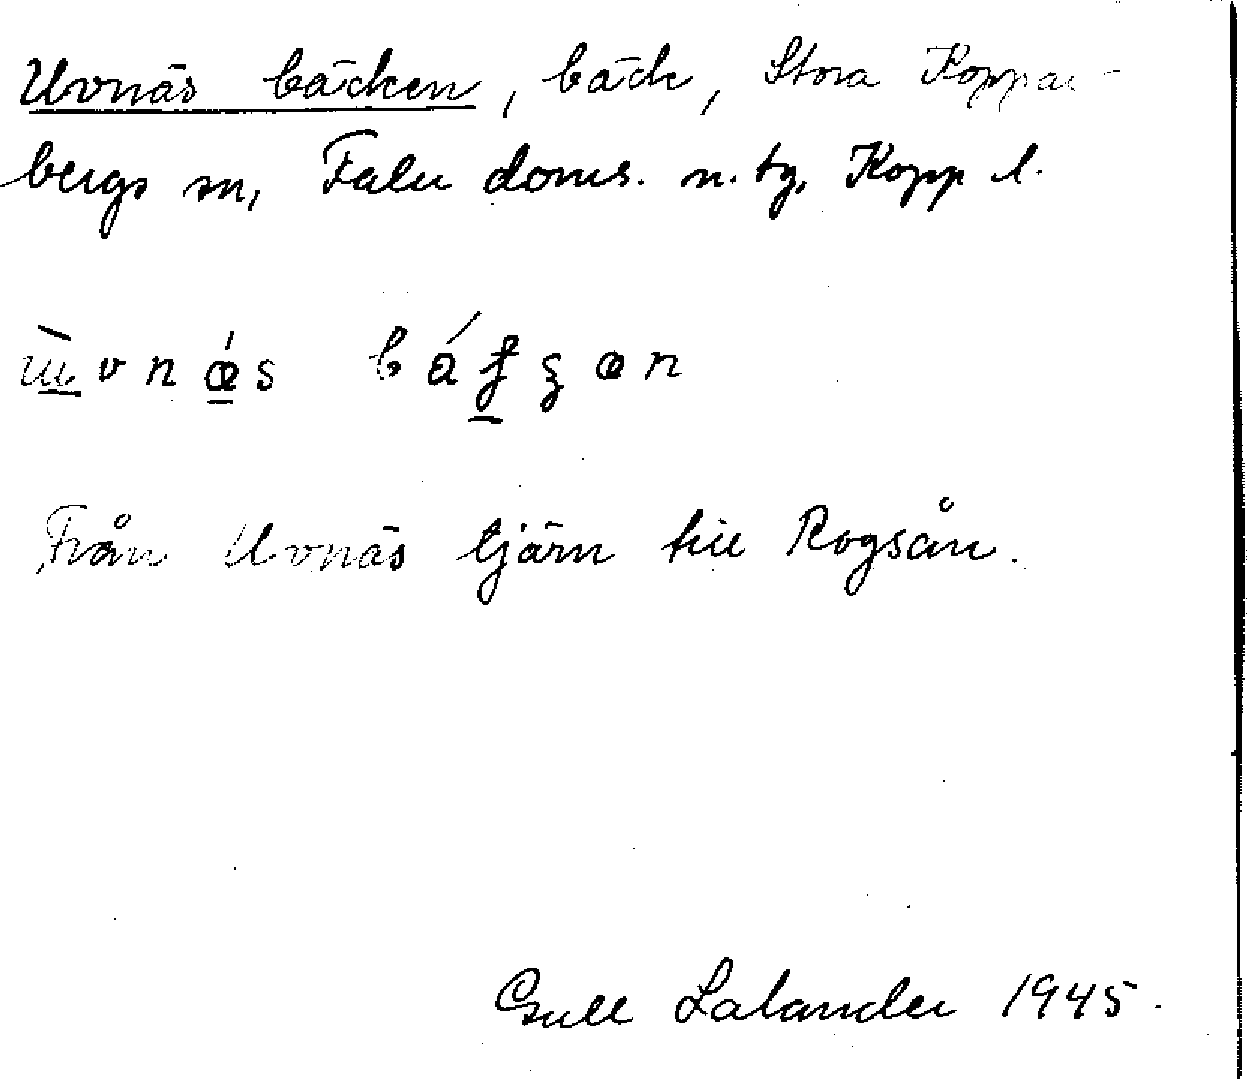 Uvnäs bäcken, bäck, Stora Koppar-
bergs sn, Falu doms. n. tg. Kopp l.
Från Uvnäs tjärn till Rogsån.
Gull Lalander 1945.